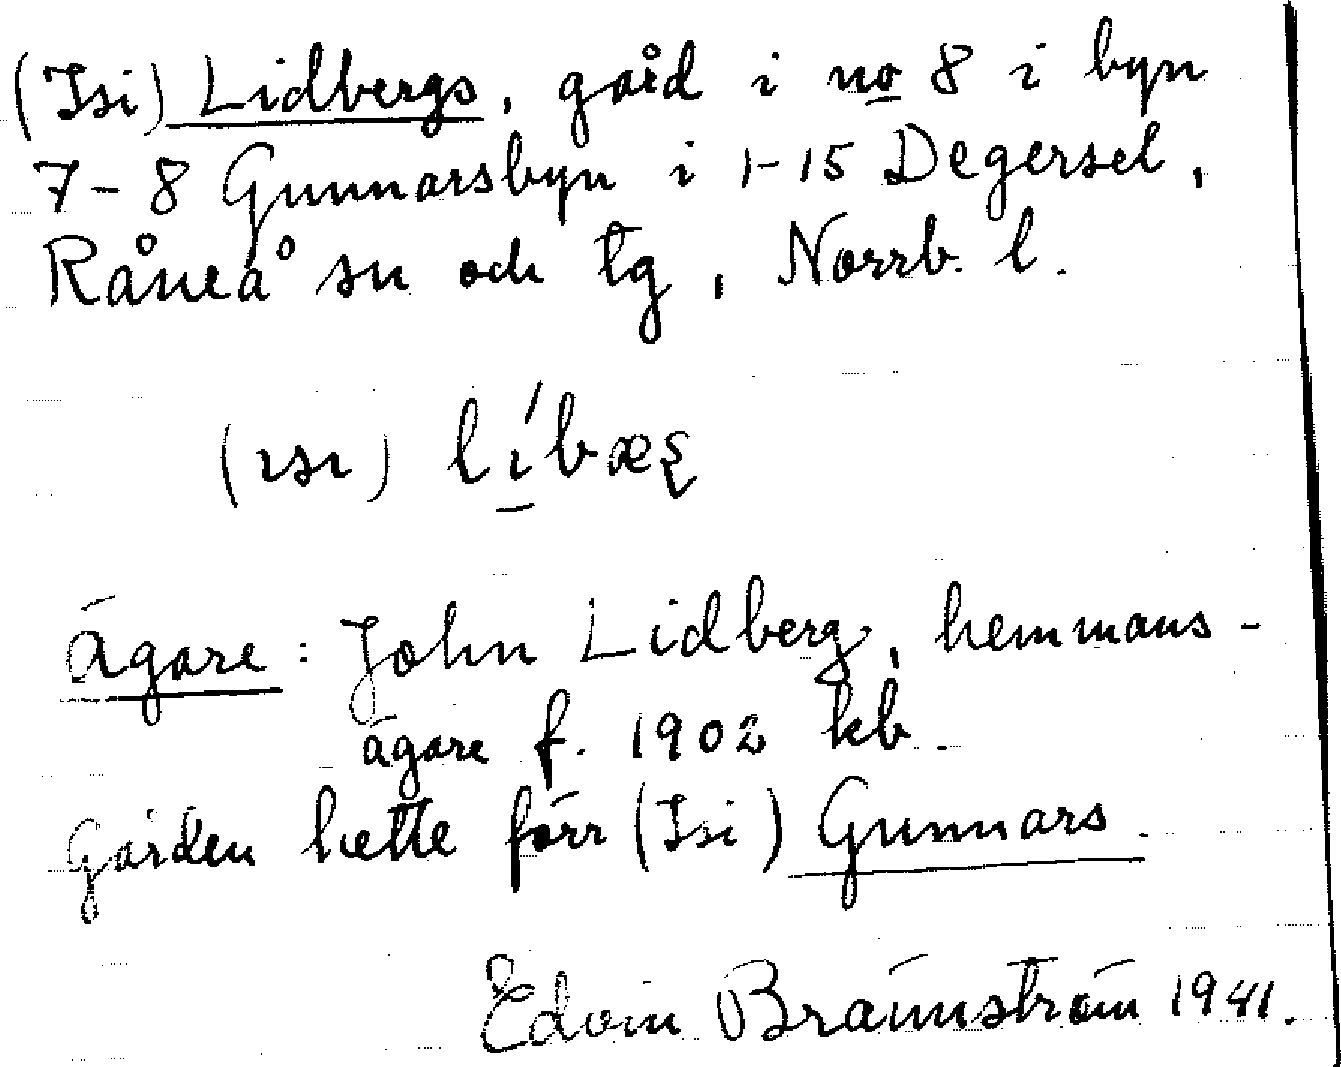 (Isi) Lidbergs, gård i no 8 i byn
7-8 Gunnarsbyn i 1-15 Degersel,
Råneå sn och tg, Norrb. l.
(ısı)
ägare: John Lidberg, hemmans-
ägare f. 1902 kb.
Gården hette förr (Isi) Gunnars.
Edvin Brännström 1941.